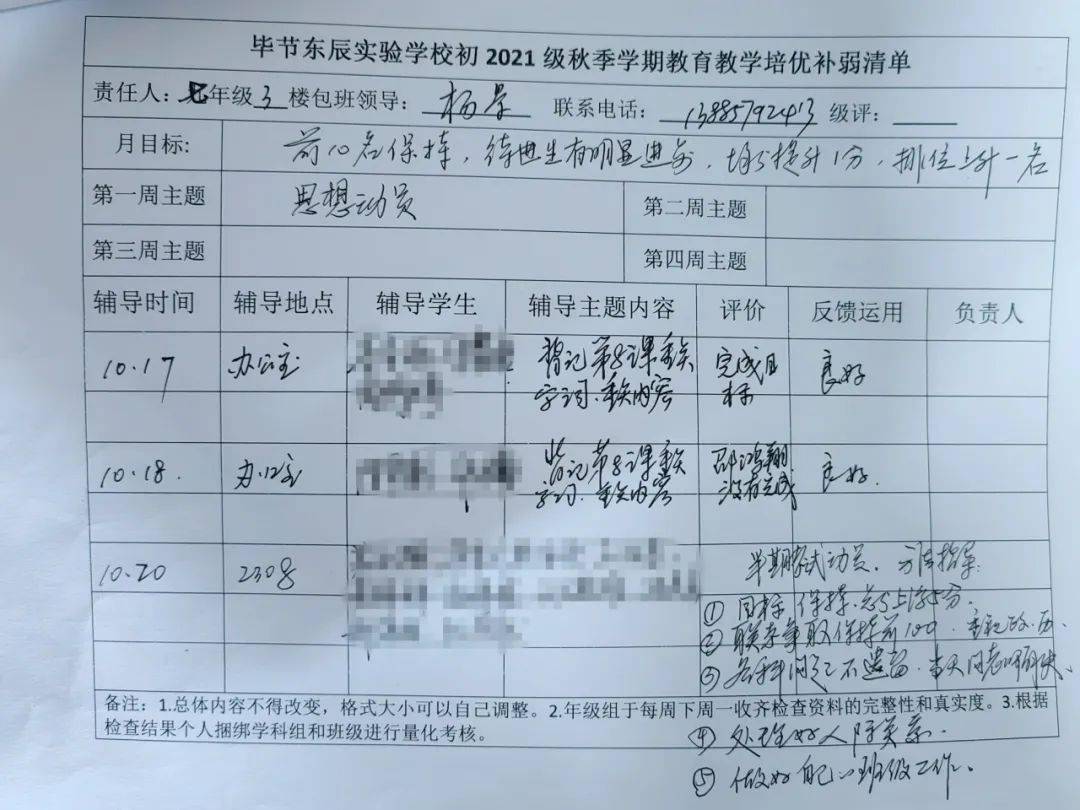 毕节东辰实验学校初2021级秋季学期教育教学培优补弱清单
责任人：七年级3楼包班领导：杨景 联系电话：13885792413 级评：
月目标： 前10名保持，待进生有明显进步，均分提升1分，排位上升一名
第一周主题 思想动员 第二周主题
第三周主题 第四周主题
辅导时间 辅导地点 辅导学生 辅导主题内容 评价 反馈运用 负责人
10.17 办公室 背记第8课重点 完成目 良好
字词、重点内容 标
10.18. 办公室 背记第8课重点 邵鸿翔 良好.
字词、重点内容 没有完成
10.20 2308 半期考试动员、方法指导：
① 目标 保持、总分上浮5分、
② 联系争取保持前100
③ 各科问题不遗留、当天问老师解决、
备注：1.总体内容不得改变，格式大小可以自己调整。2.年级组于每周下周一收齐检查资料的完整性和真实度。3.根据
检查结果个人捆绑学科组和班级进行量化考核。
④ 处理好人际关系.
⑤ 做好自己的班级工作、